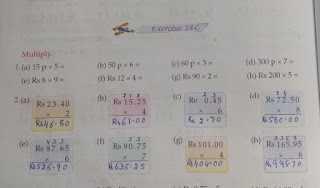 Exercise 24C
Multiply.
1. (a) 15 p × 5 = (b) 50 p × 6 = (c) 60 p × 3 = (d) 300 p × 7 =
(e) Rs 8 × 9 = (f) Rs 12 × 4 = (g) Rs 90 × 2 = (h) Rs 200 × 5 =
2. (a) Rs 23.40 (b) Rs 15.25 (c) Re 0.45 (d) Rs 72.50
× 2 × 4 × 6 × 8
Rs 46.80 Rs 61.00 Rs 2.70 Rs 580.00
(e) Rs 87.65 (f) Rs 90.75 (g) Rs 101.00 (h) Rs 165.95
× 6 × 7 × 4 × 6
Rs 525.90 Rs 635.25 Rs 404.00